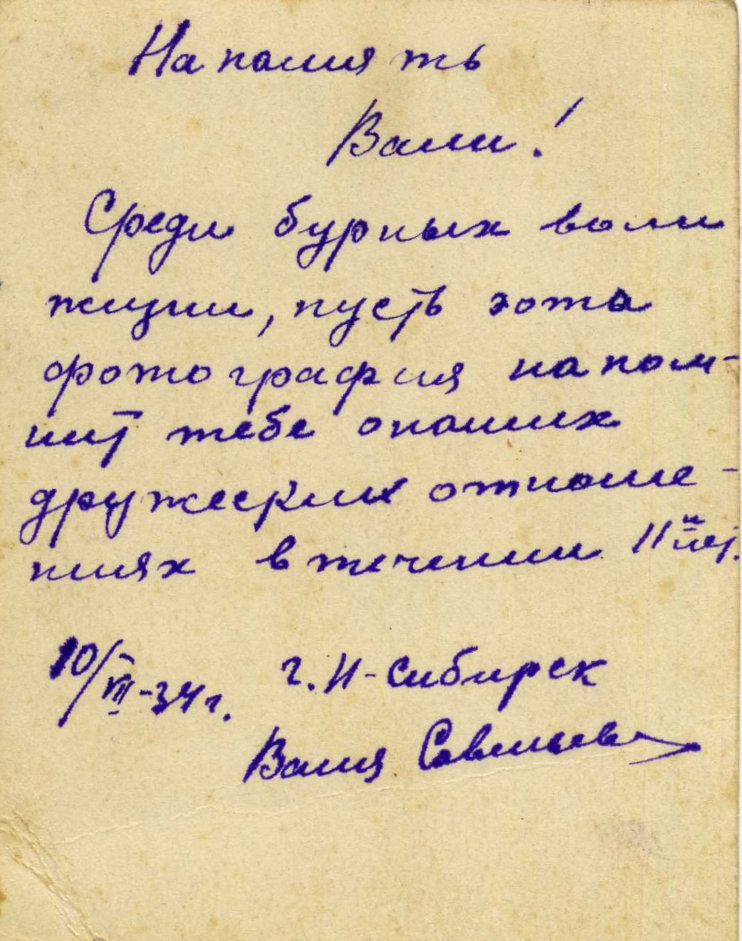 На память
Вали!
Среди бурных волн
жизни, пусть эота
фотография напом-
нит тебе онаших
дружеских отноше-
ниях в течении 11 и лет.
10/VII-34 г. г. Н-Сибирск
Валя Савельева